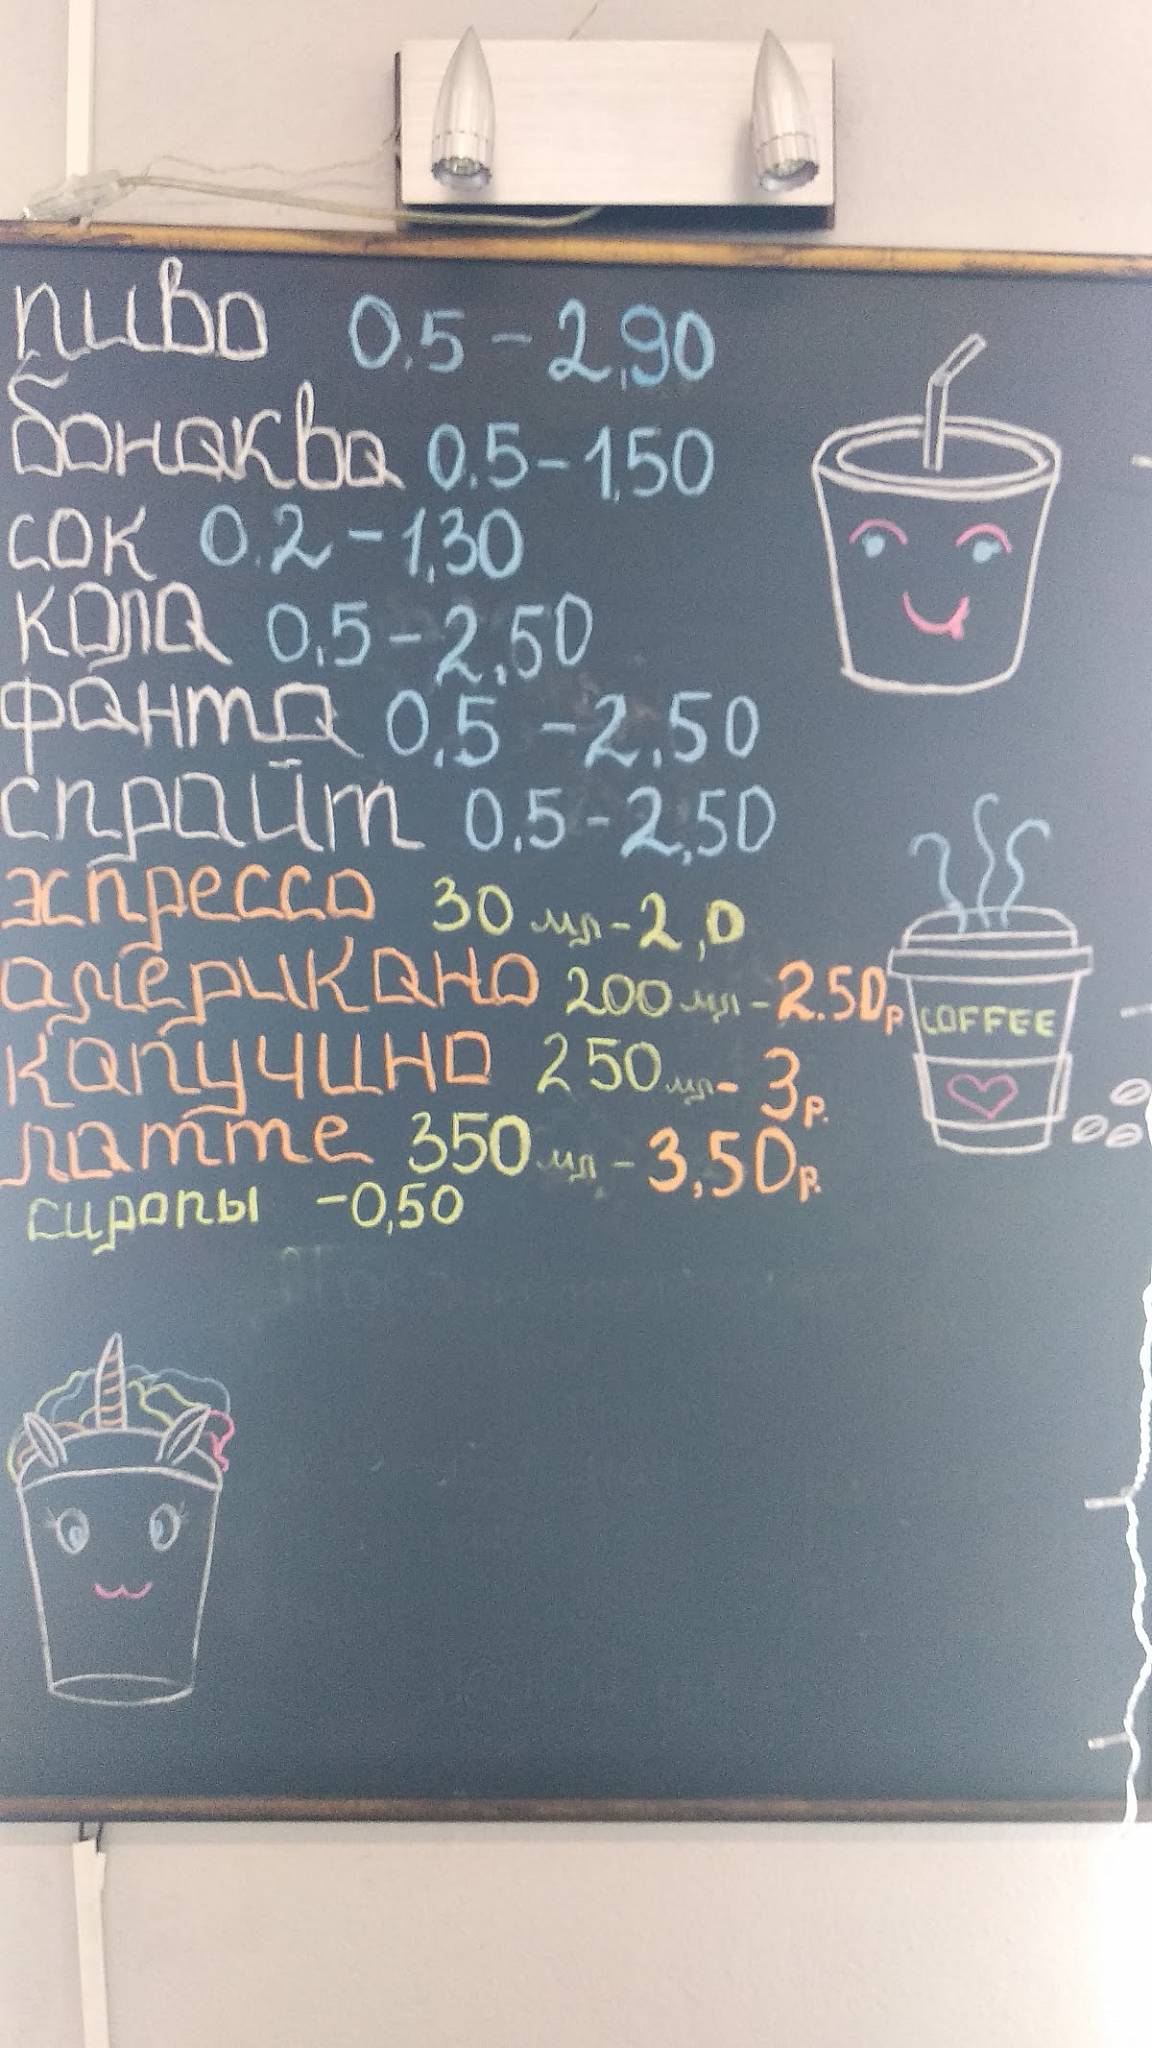 пиво 0,5 - 2,90
бонаква 0.5 - 1,50
сок 0.2 - 1,30
кола 0,5 - 2,50
фанта 0,5 - 2,50
спрайт 0,5 - 2,50
эспрессо 30 мл - 2,0
американо 200 мл - 2.50р
COFFEE
капучино 250 мл - 3р.
латте 350 мл - 3,50р.
сиропы - 0,50